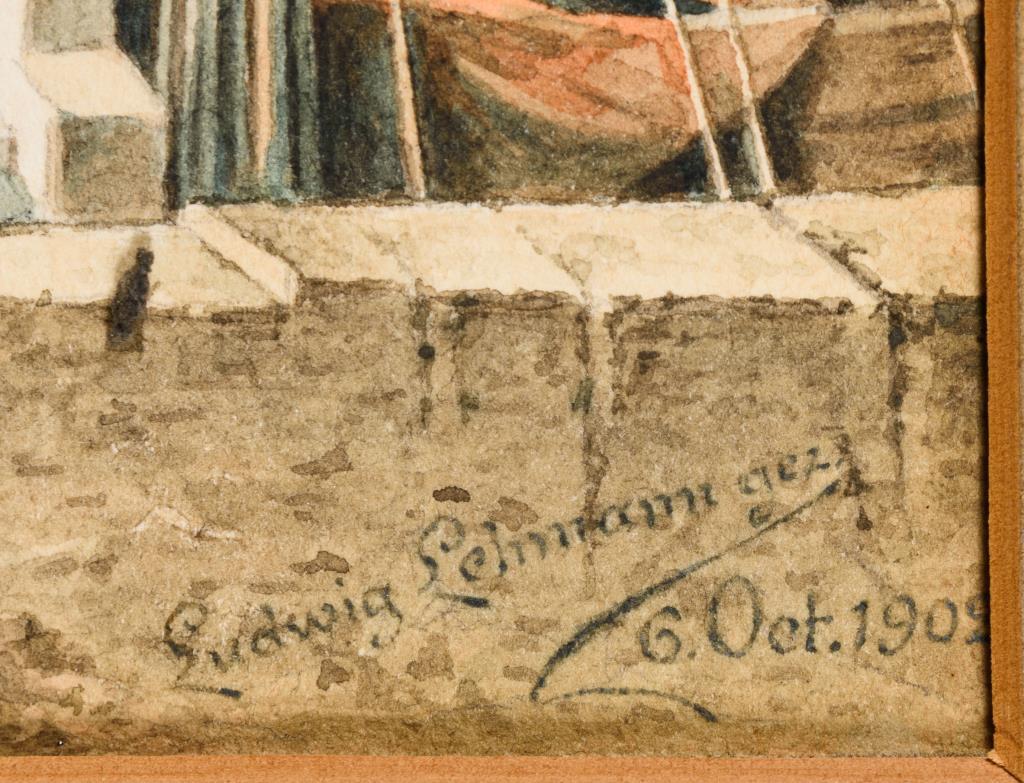 Ludwig Lehmann gez.
6. Oct. 1902